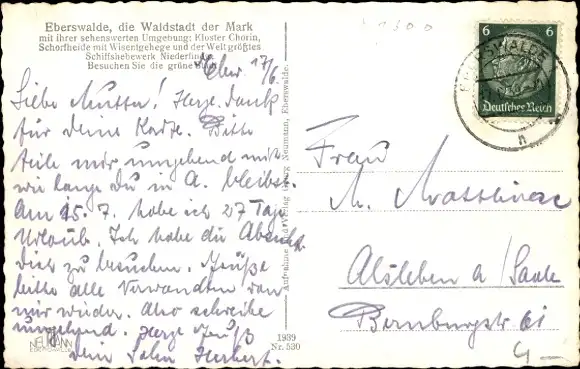 Eberswalde, die Waldstadt der Mark
mit ihrer sehenswerten Umgebung: Kloster Chorin,
Schorfheide mit Wisentgehege und der Welt größtes
Schiffshebewerk Niederfinow.
Besuchen Sie die grüne
Ebersw. 17/6.
Liebe Mutter! Herzl. Dank
für Deine Karte. Bitte
teile mir umgehend mit
wie lange Du in A. bleibst.
Am 15. 7. habe ich 27 Tage
Urlaub. Ich habe die Absicht
Dich zu besuchen. Grüße
bitte alle Verwandten von
mir wieder. Also schreibe
umgehend. Herzl. Grüß
Dein Sohn Herbert.
NEUMANN
EBERSWALDE
Aufnahme und Verlag Georg Neumann, Eberswalde.
1939
Nr. 530
6 6
Deutsches Reich
EBERSWALDE
n
Frau
M.
Alsleben a/Saale
Bernburgstr. 61
4–